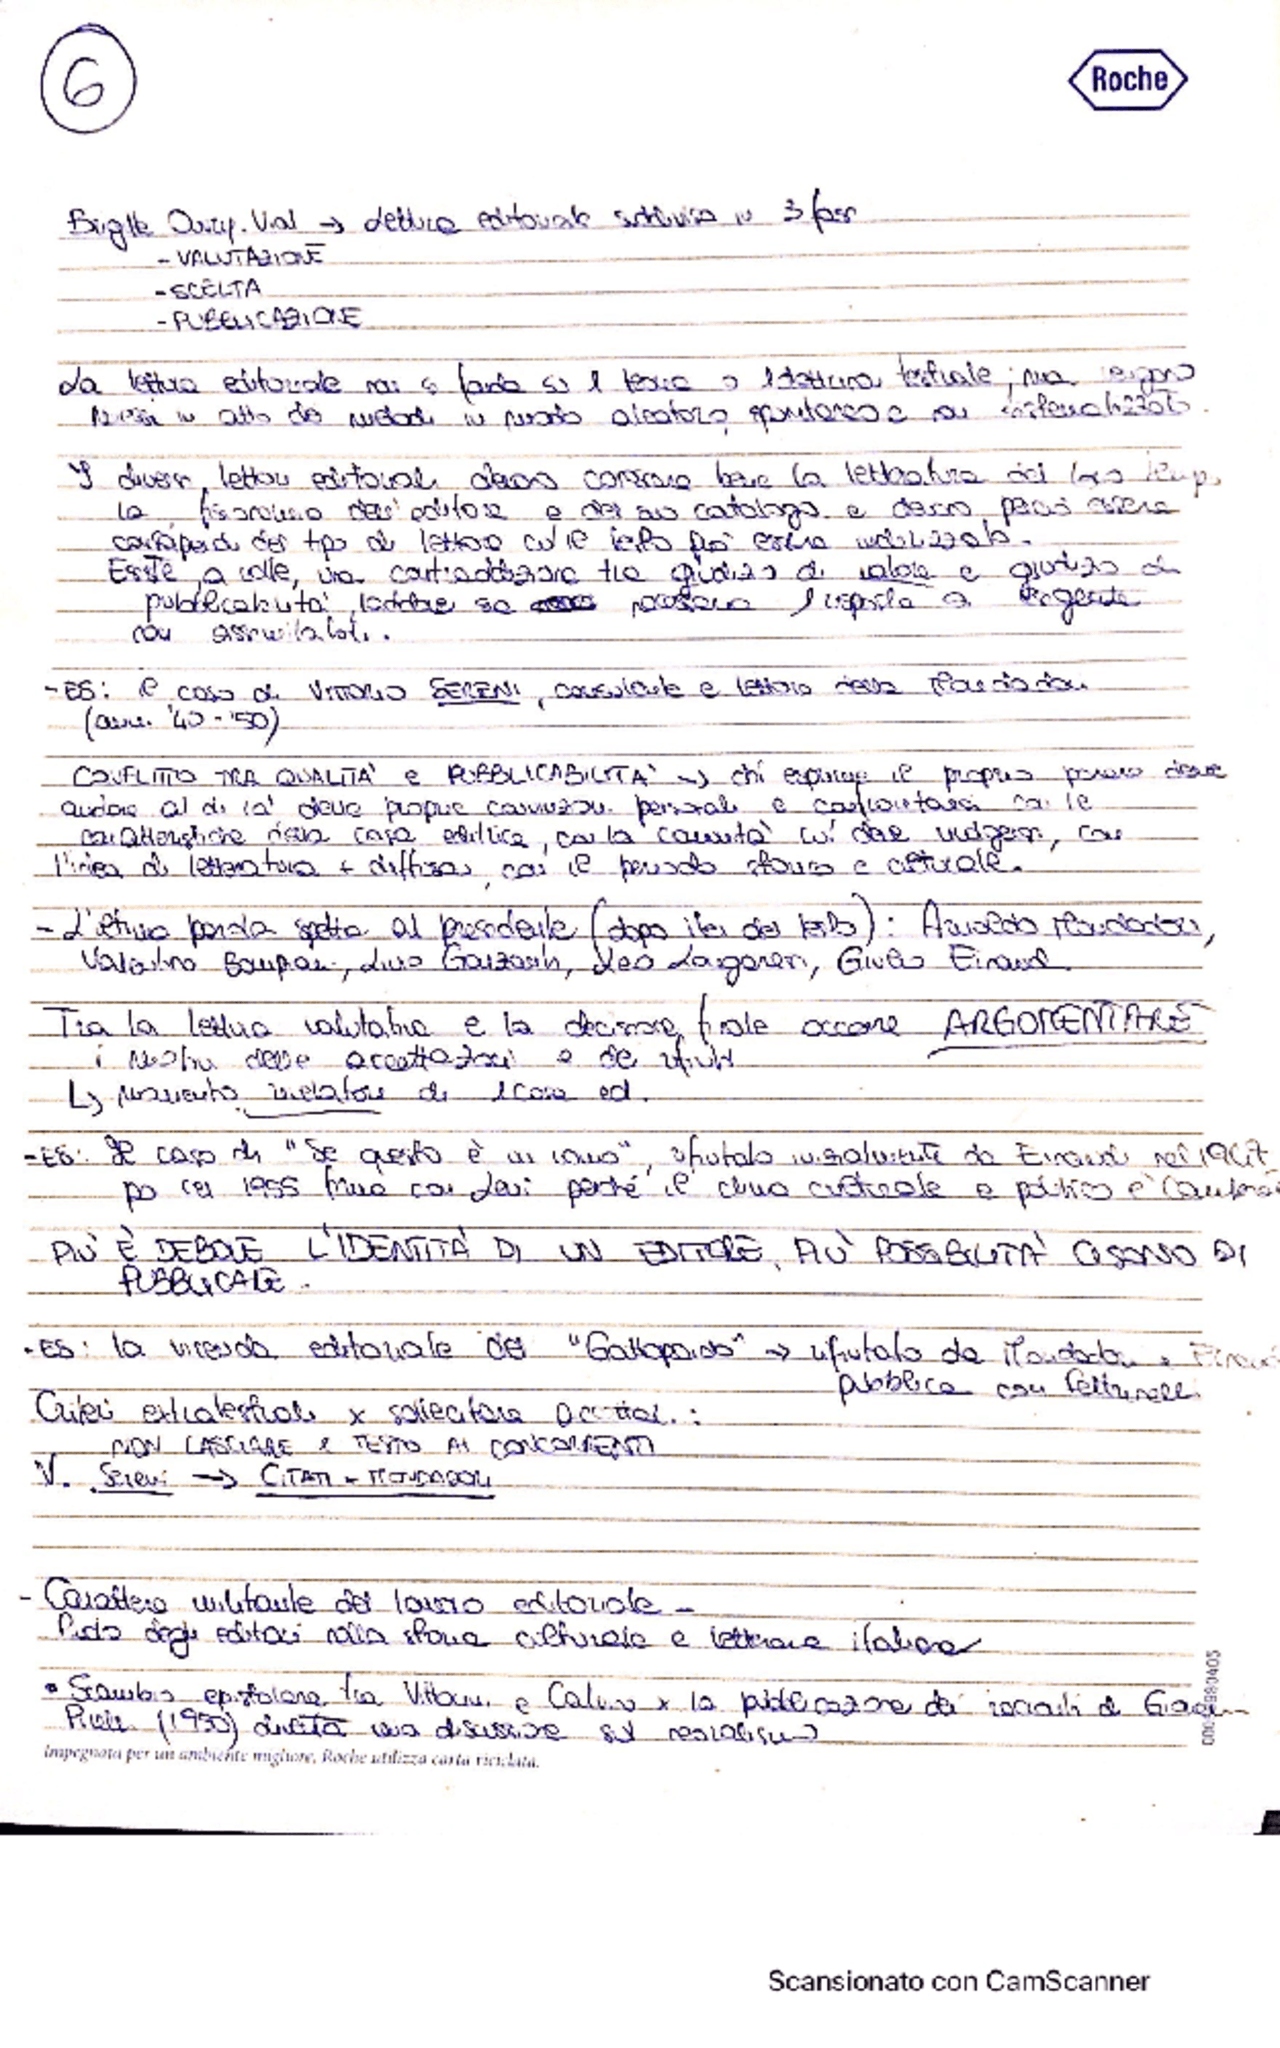 6
Roche
Val → lettura editoriale suddivisa in 3 fasi
- VALUTAZIONE
- SCELTA
- PUBBLICAZIONE
La lettura editoriale non si fonda su teoria o testuale; ma vengono
in atto dei metodi in modo aleatorio, spontaneo e non sistematizzato.
I diversi lettori editoriali devono conoscere bene la letteratura del loro tempo,
la fisionomia dell'editore e del suo catalogo e devono perciò essere
consapevoli del tipo di lettore cui il testo può essere indirizzato.
Esiste, a volte, una contraddizione tra giudizio di valore e giudizio di
pubblicabilità, laddove
non assimilabili.
- ES: il caso di VITTORIO SERENI, consulente e lettore della Mondadori
(anni '40 - '50)
CONFLITTO TRA QUALITA' e PUBBLICABILITA' → chi esprime il proprio parere deve
andare al di la' delle proprie convinzioni personali e confrontarsi con le
caratteristiche della casa editrice, con la comunità cui deve rivolgersi, con
l'idea di letteratura + diffusa, con il periodo storico e culturale.
- L'ultima parola spetta al presidente (dopo iter del testo): Arnoldo Mondadori,
Valentino Bompiani, Livio Garzanti, Leo Longanesi, Giulio Einaudi.
Tra la lettura valutativa e la decisione finale occorre ARGOMENTARE
i motivi delle accettazioni e dei rifiuti
↳ momento rivelatore di 1 casa ed.
- ES: Il caso di "Se questo è un uomo", rifiutato inizialmente da Einaudi nel 1947
poi nel 1955 firma con Levi perché il clima culturale e politico è
PIU' È DEBOLE L'IDENTITÀ DI UN EDITORE, PIU' POSSIBILITA' CI SONO DI
PUBBLICARE.
- ES: la vicenda editoriale del "Gattopardo" → rifiutato da Mondadori e Einaudi
pubblica con Feltrinelli.
Criteri extratestuali x sollecitare :
NON LASCIARE il TESTO AI CONCORRENTI
V. Sereni → CITATI - MONDADORI
- Carattere militante del lavoro editoriale -
Ruolo degli editori nella storia culturale e letteraria italiana
• Scambio epistolare tra Vittorini e Calvino x la pubblicazione dei racconti di
(1950) diventa una discussione sul realismo
Impegnata per un ambiente migliore, Roche utilizza carta riciclata.
Scansionato con CamScanner